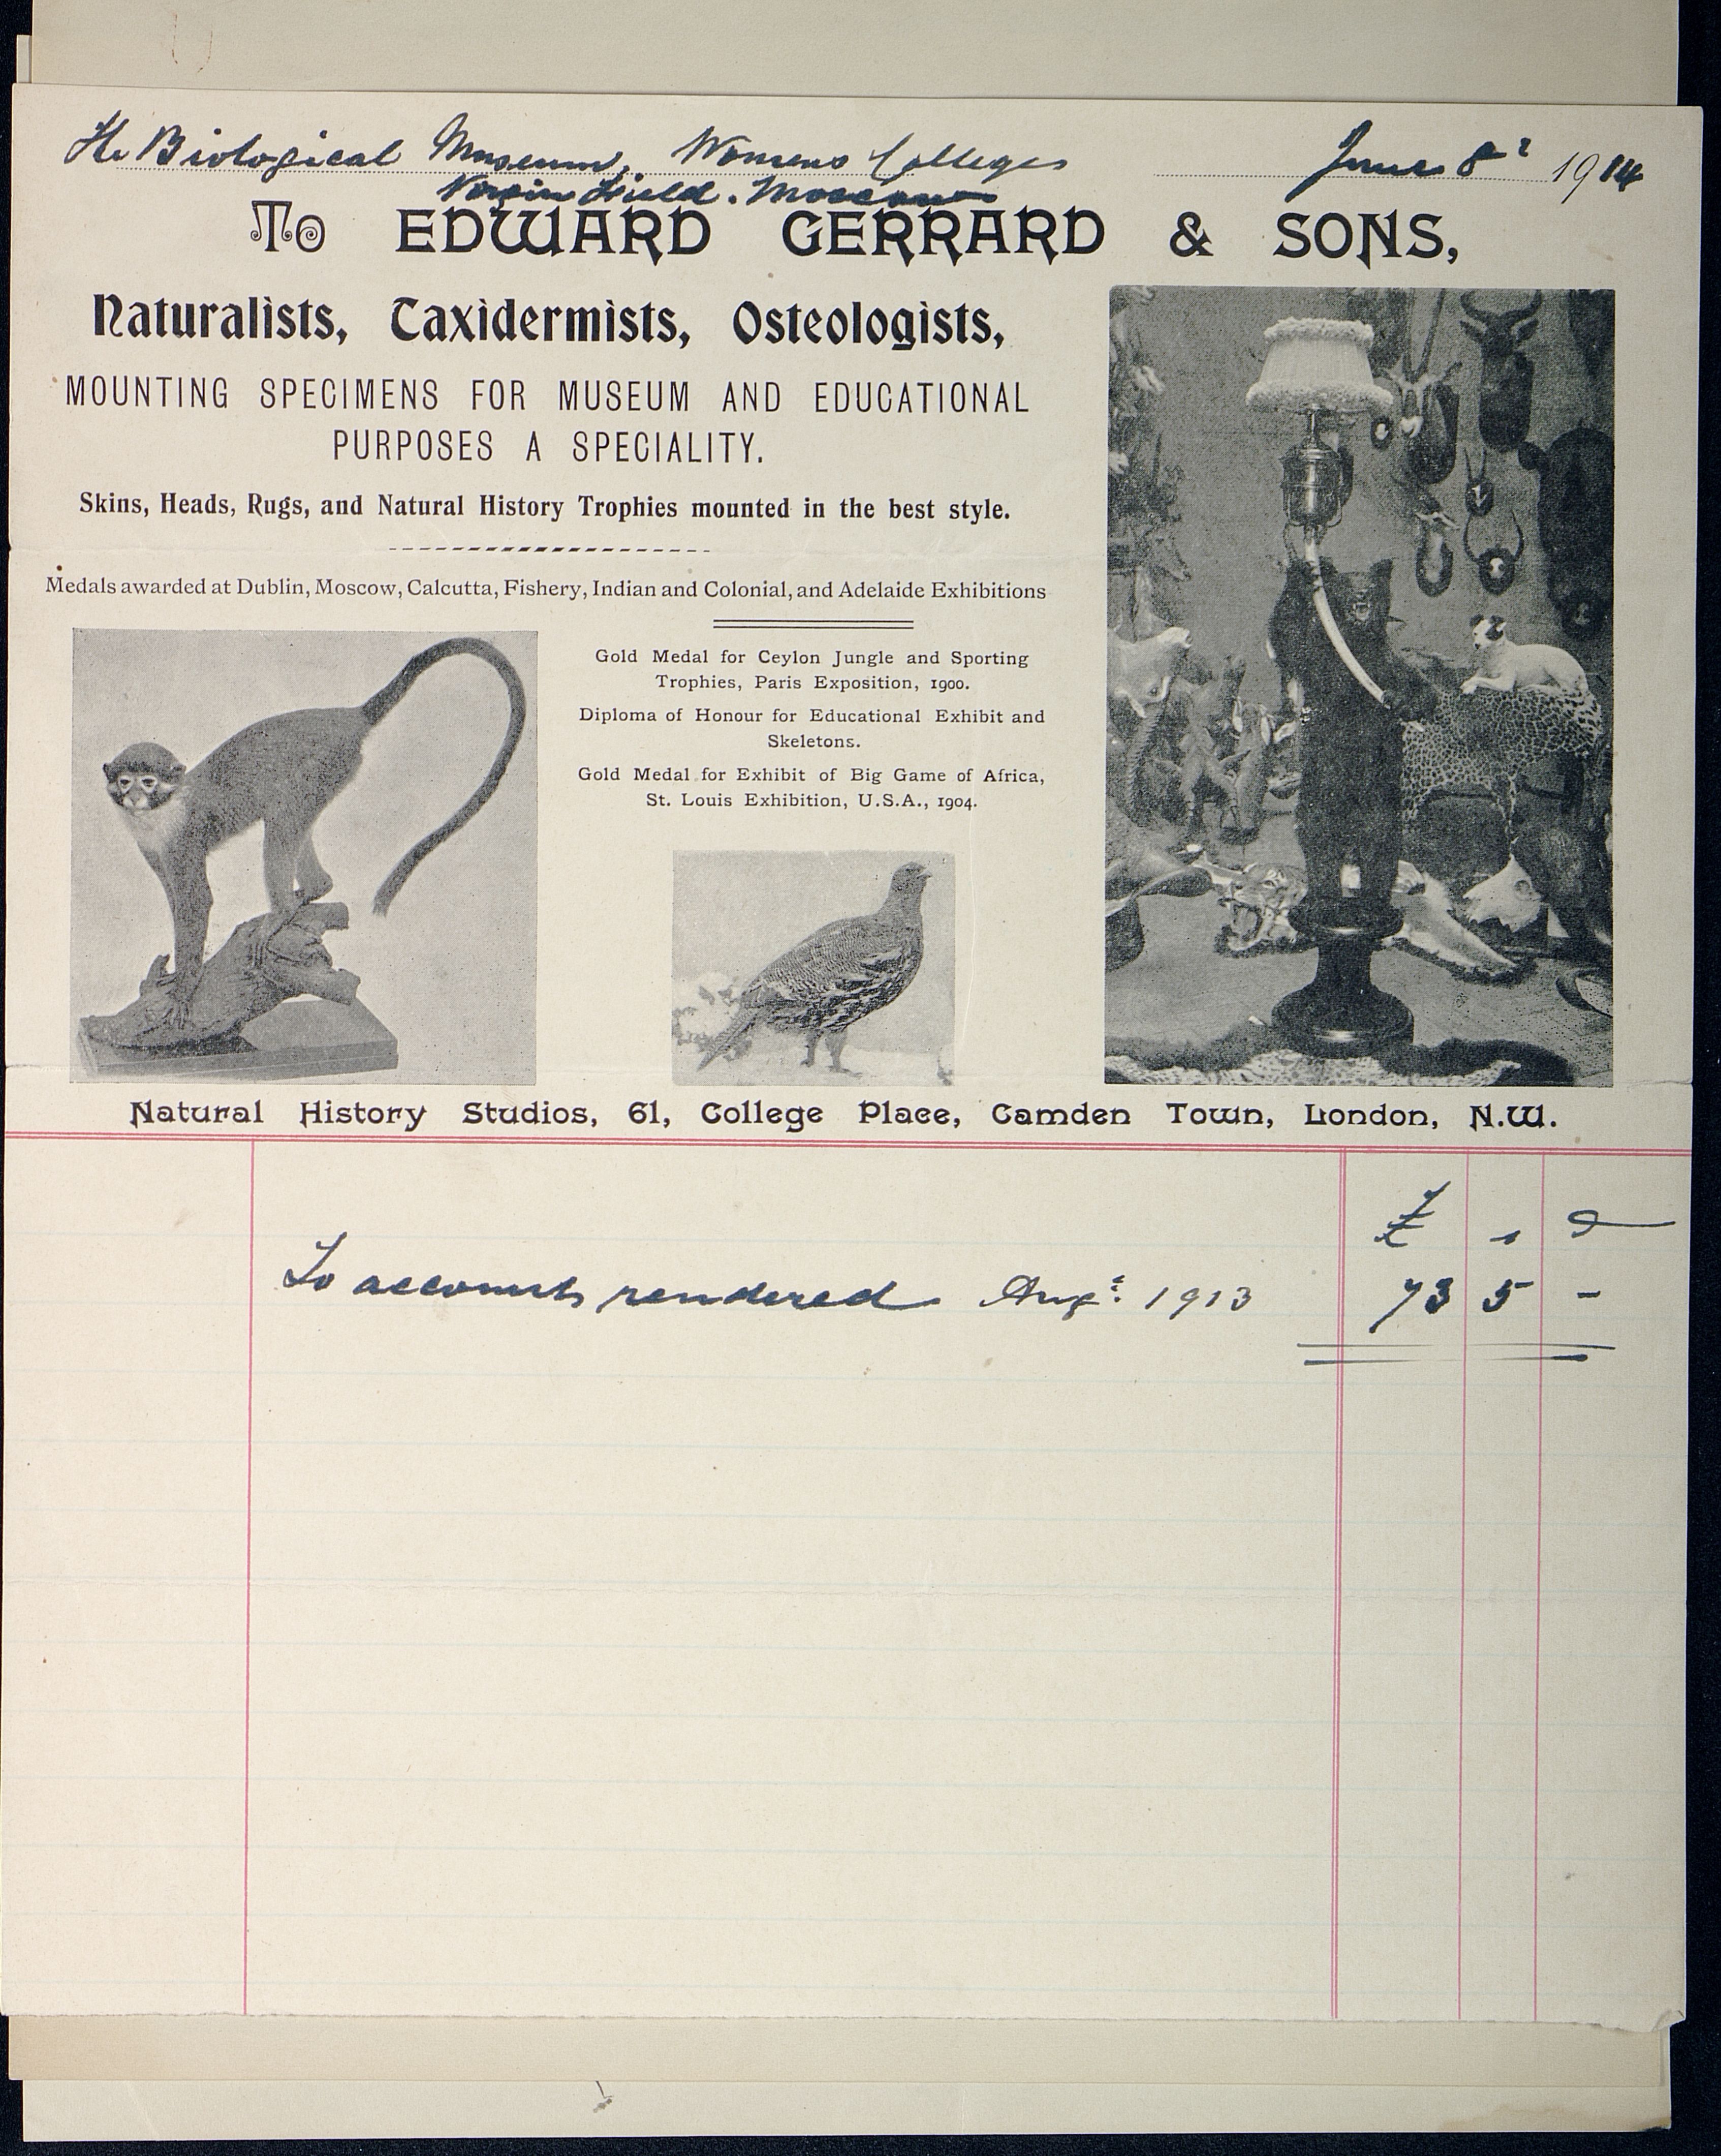 The Biological Museum, Womens Colleges June 8 1914
Virgin Field. Moscow
To EDWARD GERRARD & SONS,
Naturalists, Taxidermists, Osteologists,
MOUNTING SPECIMENS FOR MUSEUM AND EDUCATIONAL
PURPOSES A SPECIALITY.
Skins, Heads, Rugs, and Natural History Trophies mounted in the best style.
Medals awarded at Dublin, Moscow, Calcutta, Fishery, Indian and Colonial, and Adelaide Exhibitions
Gold Medal for Ceylon Jungle and Sporting
Trophies, Paris Exposition, 1900.
Diploma of Honour for Educational Exhibit and
Skeletons.
Gold Medal for Exhibit of Big Game of Africa,
St. Louis Exhibition, U.S.A., 1904.
Natural History Studios, 61, College Place, Camden Town, London, N.W.
£ s d
To accounts rendered Augt. 1913 73 5 -